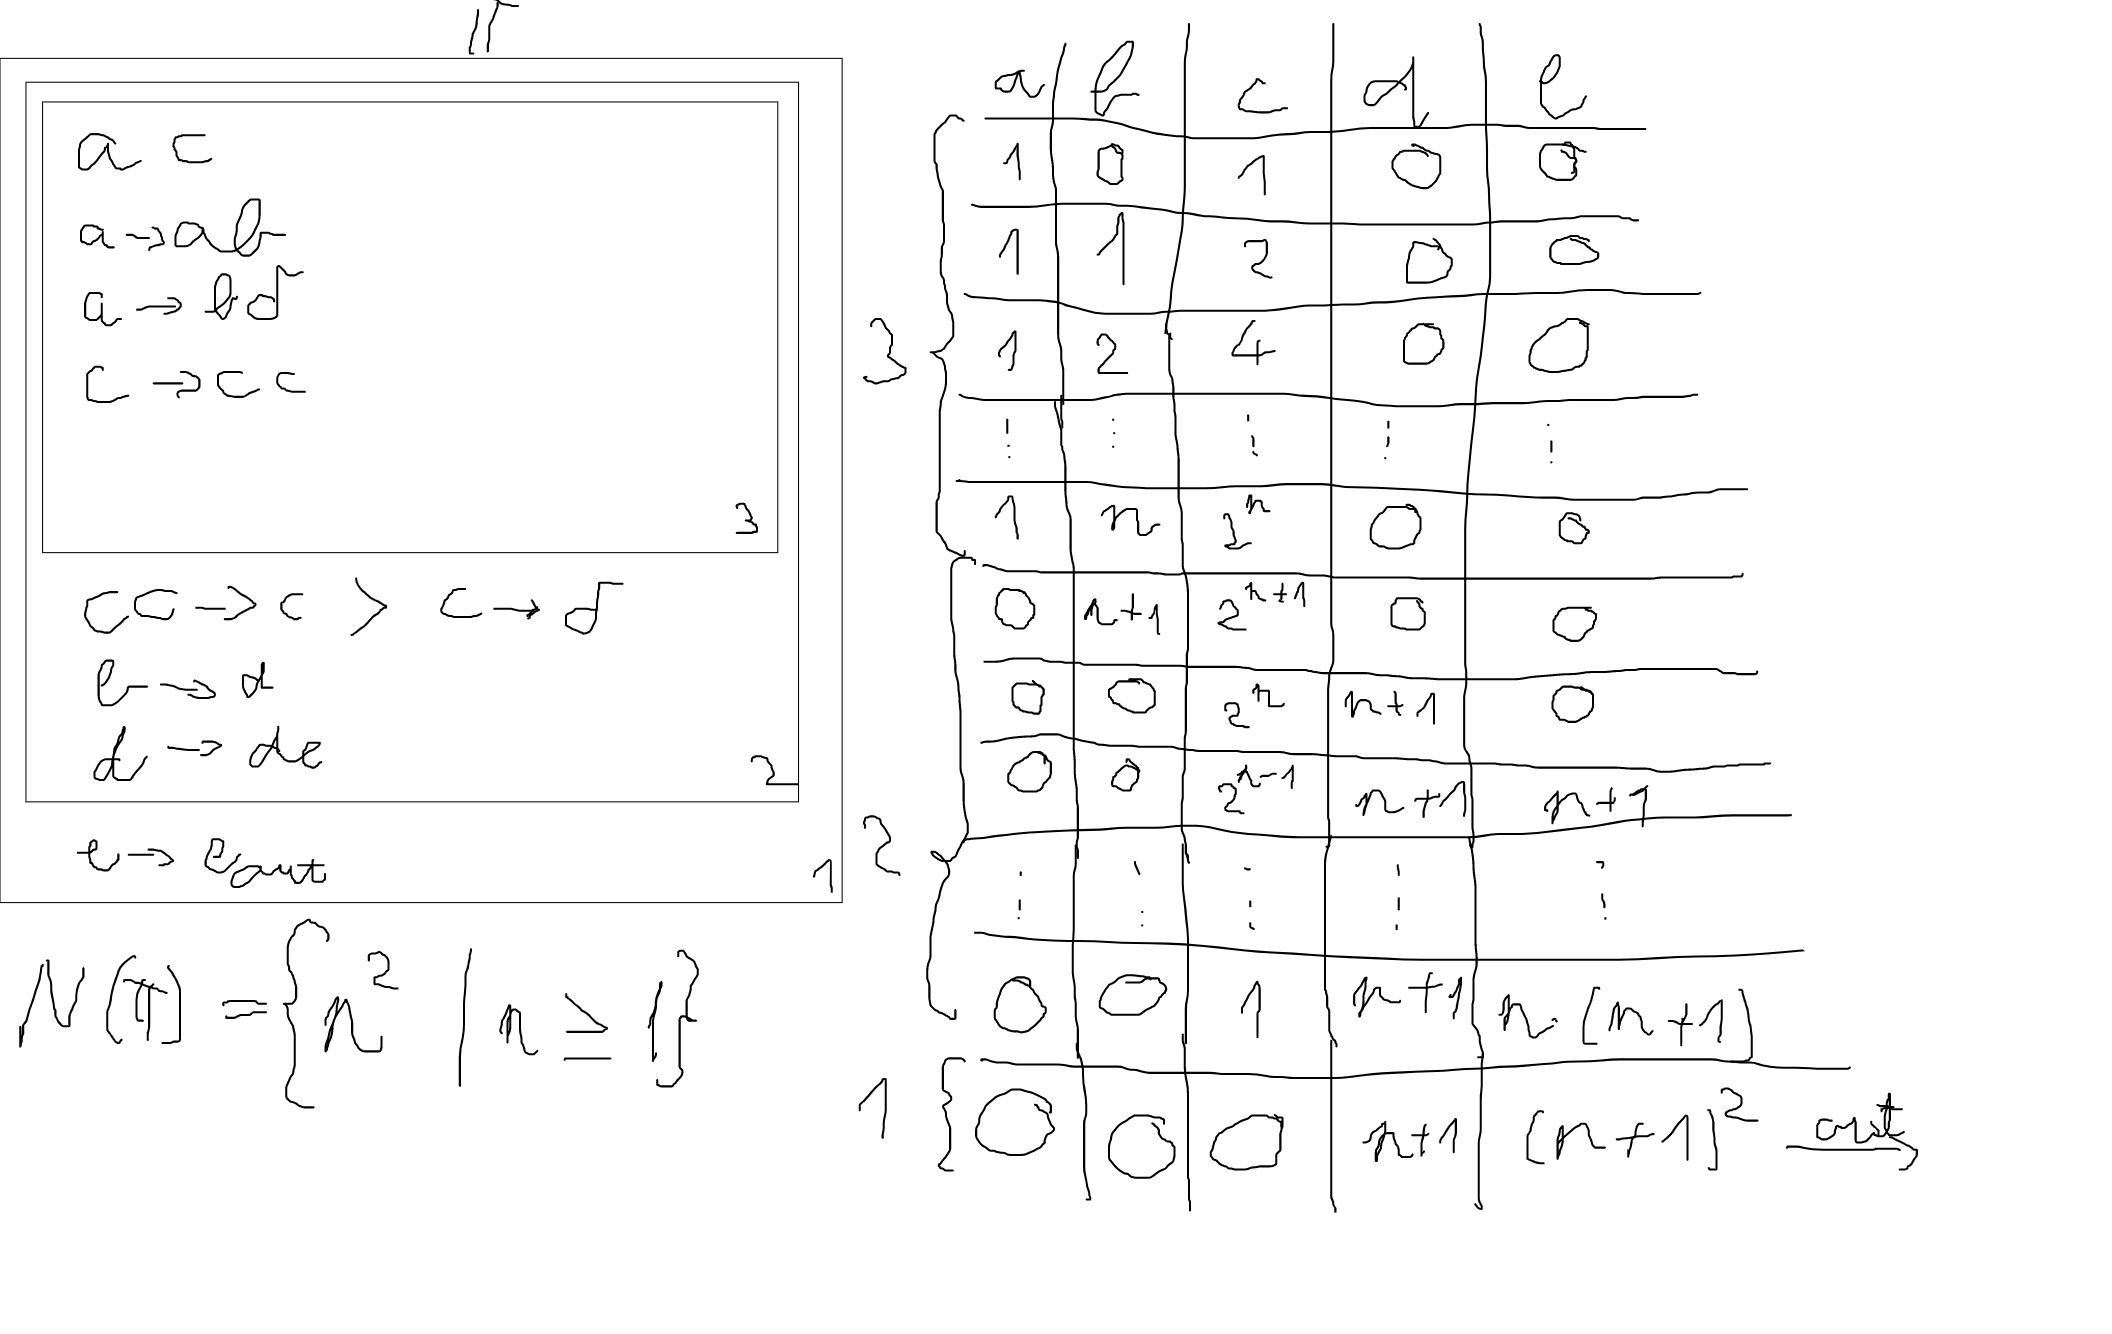 Π
a c
a → ab
a → bδ
c → cc
3
cc → c > c → δ
b → d
d → de
2
e → e_out
1
N(Π) = {n² | n ≥ 1}
a b c d e
3
1 0 1 0 0
1 1 2 0 0
1 2 4 0 0
⋮ ⋮ ⋮ ⋮ ⋮
1 n 2ⁿ 0 0
2
0 n+1 2ⁿ⁺¹ 0 0
0 0 2ⁿ n+1 0
0 0 2ⁿ⁻¹ n+1 n+1
⋮ ⋮ ⋮ ⋮ ⋮
0 0 1 n+1 n·(n+1)
1
0 0 0 n+1 (n+1)² out